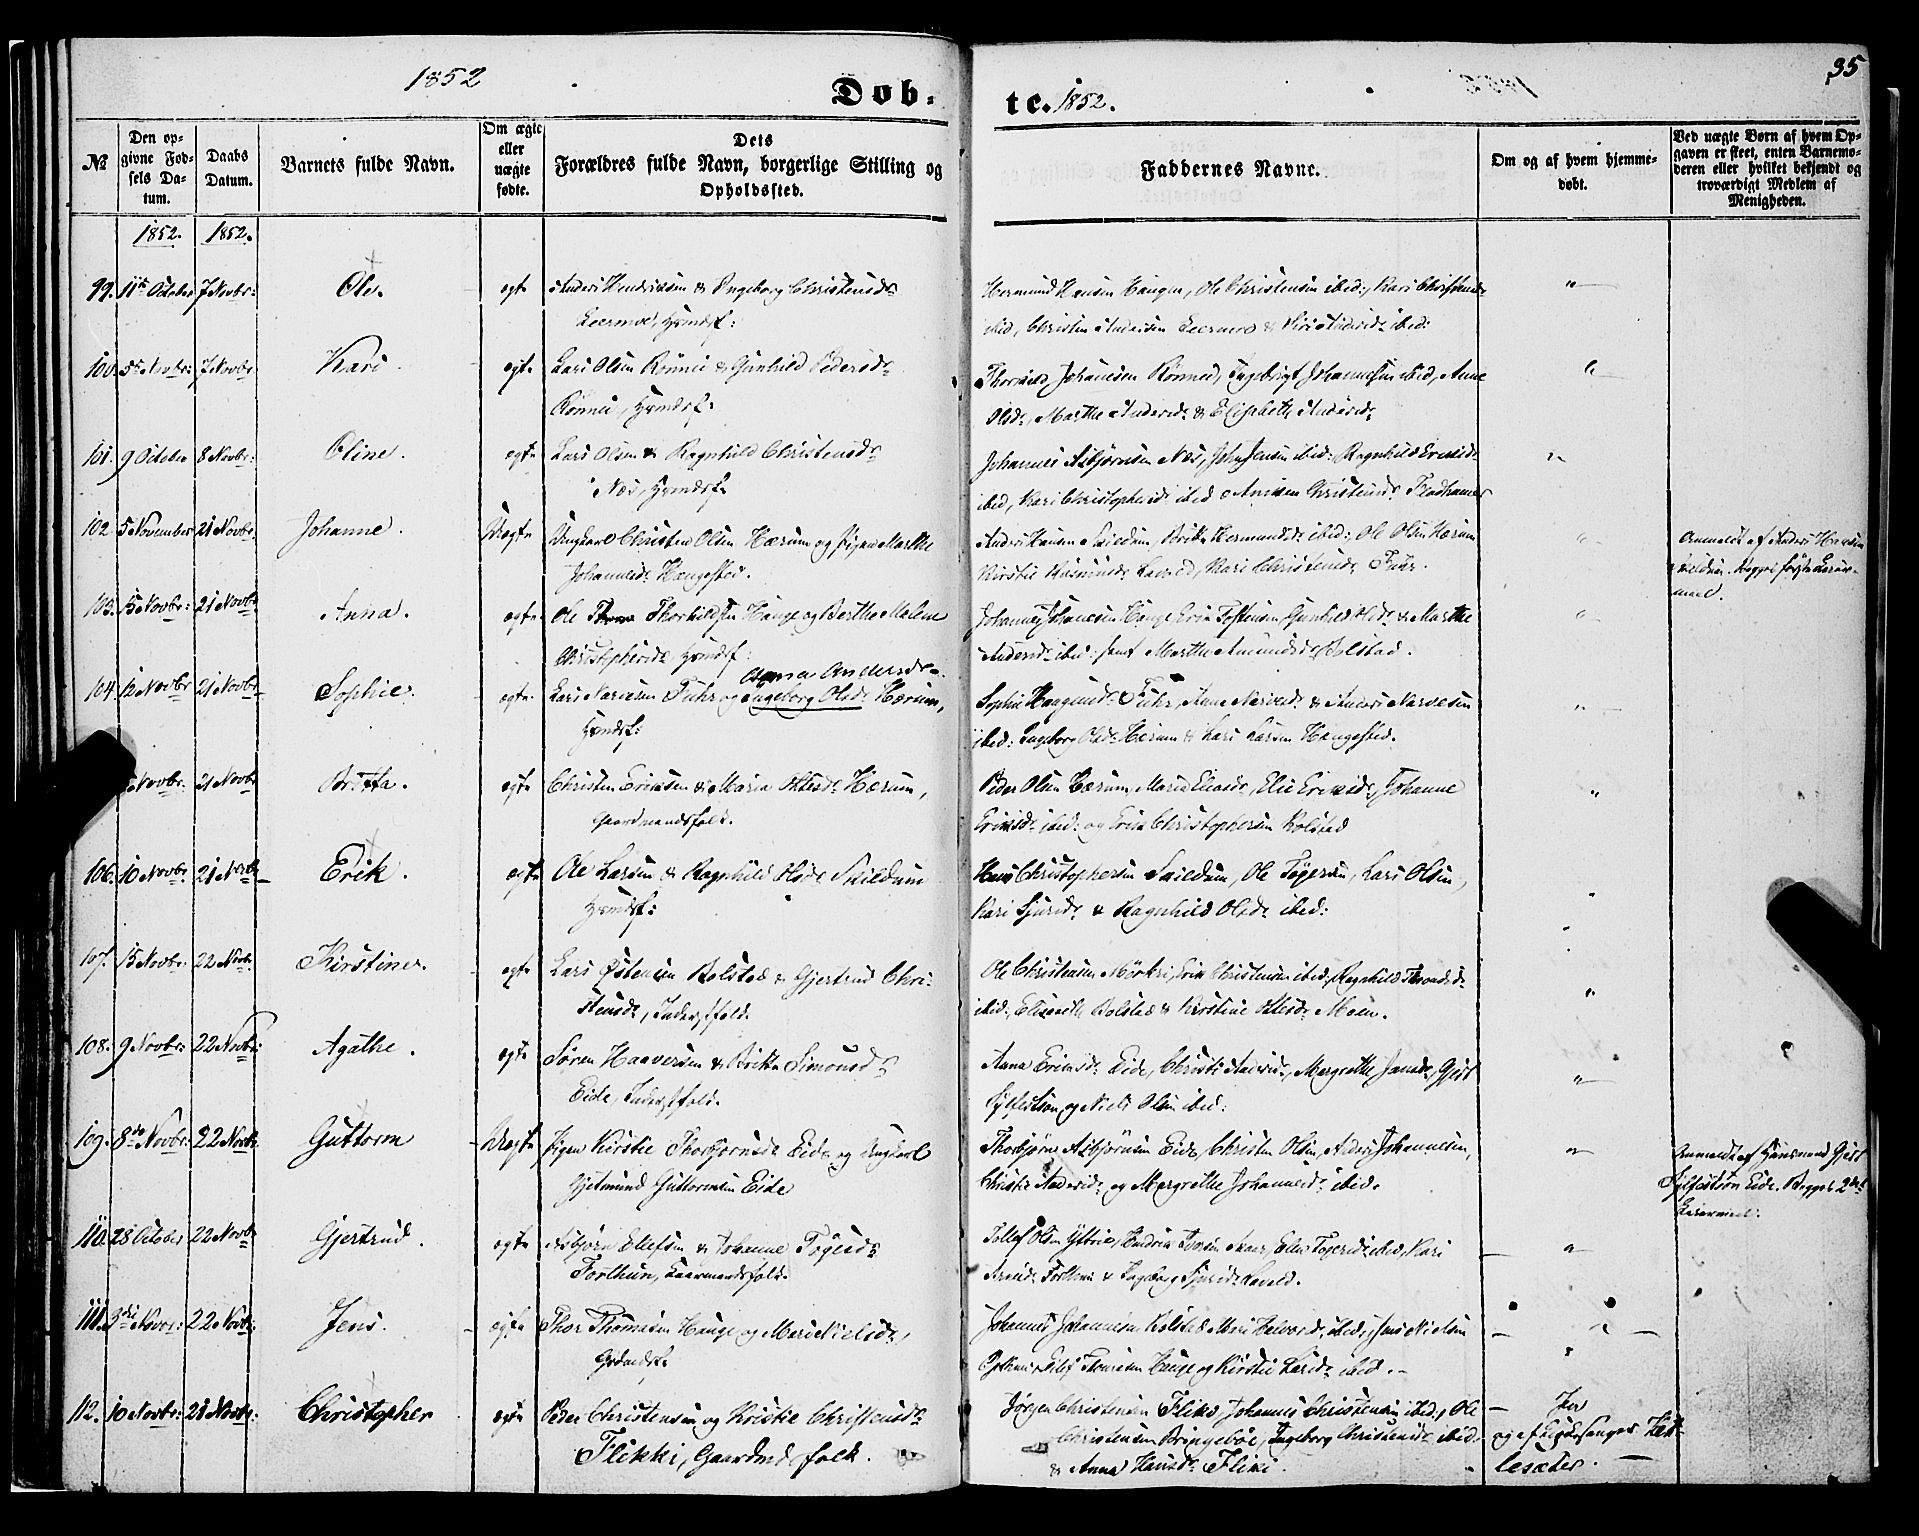 1852
Døb-
te. 1852.
35
№
Den op-
givne Fød-
sels Da-
tum.
Daabs
Datum.
Barnets fulde Navn.
Om ægte
eller
uægte
fødte.
Dets
Forældres fulde Navn, borgerlige Stilling og
Opholdssted.
Faddernes Navne.
Om og af hvem hjemme-
døbt.
Ved uægte Børn af hvem Op-
gaven er skeet, enten Barnemo-
deren eller hvilket bekjendt og
troværdigt Medlem af
Menigheden.
1852. 1852.
99. 11te October 7 Novbr: Ole. egte Anders Hendriksen & Ingeborg Christensdr
Leermo, Hsmdsf:
Hermund Hansen Haugen, Ole Christensen ibid:, Kari Christensdr
ibid, Christen Andersen Leermo & Siri Andersdr ibid:
100. 5te Novbr: 7 Novbr Kari. egte Lars Olsen Rønnei & Gunhild Pedersdr
Rønnei, Hsmdsf:
Johannesen Rønnei, Ingebrigt Johannesen ibid, Anne
Olsdr, Marthe Andersdr & Elisabeth Andersdr
101. 9 October 8 Novbr: Oline. egte Lars Olsen & Ragnhild Christensdr
Næs, Hsmdsf:
Johannes Asbjørnsen Næs, John Jensen ibid: Ragnhild Eriksdr
ibid, Kari Christophersdr ibid & Christensdr
102. 5 November 21 Novbr. Johanne. Uegte Ungkarl Christen Olsen Hærum og Pigen Marthe
Johannesdr Haugested.
Anders Hansen Skieldum, Brita Hermundsdr ibid: Ole Olsen Hærum
Kirstie Rasmusdr, Kari Christensdr Fuhr.
Anmeldt af Anders Hansen
Skieldum. Begges første Leier-
maal.
103. 15 Novbr: 21 Novbr Anna. egte Ole Thorkildsen Hauge og Berthe Malene
Christophersdr Hsmdsf:
Johannes Johannesen Hauge, Erik Tostensen, Gunhild Olsdr & Marthe
Andersdr ibid: samt Marthe Amundsdr Bolstad.
104. 12 Novbr 21 Novbr Sophie. egte Lars Narvesen Fuhr og Ingeborg Olsdr Hærum,
Anna Andersdr
Hsmdsf:
Sophie Haagensdr Fuhr, Anne Narvesdr & Anders Narvesen
ibid: Ingeborg Olsdr Hærum & Lars Larsen Haugested.
Novbr: 21 Novbr Britta. egte Christen Eriksen & Maria Ottesdr Hærum,
Gaardmandsfolk.
Peder Olsen Hærum, Maria Eliasdr, Elie Eriksdr, Johanne
Eriksdr ibid: og Erik Christophersen Kolstad
106. 10 Novbr 21 Novbr Erik. egte Ole Larsen & Ragnhild Olsdr Skieldum
Hsmdsf:
Hans Christophersen Skieldum, Ole Tøgersen, Lars Olsen,
Kari Sjursdr & Ragnhild Olsdr ibid:
107. 15 Novbr: 22 Novbr. Kirstine. egte Lars Østensen Bolstad & Gjertrud Chri-
stensdr, Inderstfolk.
Ole Christensen Mørkri, Erik Christensen ibid:, Ragnhild Throndsdr
ibid:, Elisabeth Bolstad & Kirstine Ottesdr Moen.
108. 9 Novbr: 22 Novbr: Agathe. egte Søren Haaversen & Britha Simonsdr
Eide, Inderstfolk.
Anna Eriksdr Eide, Christi Andersdr, Margrethe Jansdr, Gjest
Sylfestsøn og Niels Olsen ibid:
109. 8de Novbr: 22 Novbr. Guttorm Uegte Pigen Kirstie Thorbjørnsdr Eide og Ungkarl
Gjetmund Guttormsen Eide
Thorbjørn Asbjørnsen Eide, Christen Olsen, Anders Johannesen,
Christie Andersdr og Margrethe Johannesdr ibid.
Anmeldt af Huusmand Gjest
Sylfestsøn Eide. Begges 2det
Leiermaal.
110. 28 October 22 Novbr Gjertrud. egte Asbjørn Ellefsen & Johanne Tøgersdr
Forthun, Gaarmandsfolk.
Tollef Olsen, Hendrik, Elen Tøgersdr ibid, Kari
Forthun & Ingeborg Sjursdr.
111. 3die Novbr: 22 Novbr. Jens. egte Thor Thomasen Hauge og Mari Nielsdr,
Grdmdsf.
Johannes Johannesen Kolstad, Mari Halvorsdr ibid:, Jens Nielsen
Thomasen Hauge og Kirstie Larsdr ibid.
112. 10 Novbr: 21 Novbr: Christopher egte Peder Christensen og Kristie Christensdr
Flikki, Gaardmdsfolk.
Jørgen Christensen Fliki, Johannes Christensen ibid:, Ole
Christensen Bringebøe, Ingeborg Christensdr ibid.
& Anna Hansdr Fliki.
Ja
og af Kirkesanger Kit-
lesæter.